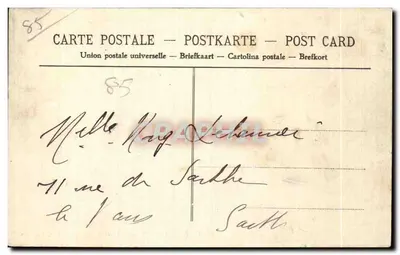 85
CARTE POSTALE — POSTKARTE — POST CARD
Union postale universelle — Briefkaart — Cartolina postale — Brefkort
85
Melle
11 rue de Sarthe
le Mans
Sarthe